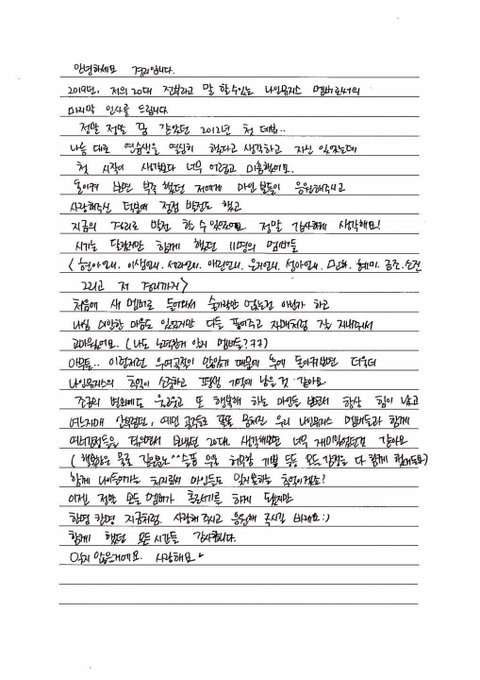 안녕하세요 경리입니다.
2019년, 저의 20대 전부라고 말 할 수 있는 나인뮤지스 멤버로서의
마지막 인사를 드립니다
정말 정말 꿈 같았던 2012년 첫 데뷔..
나름 대로 연습생을 열심히 했다고 생각하고 자신 있었는데
첫 시작이 생각보다 너무 어렵고 미흡했어요.
돌이켜 보면 부족 했던 저에게 마인 분들이 응원해주시고
사랑해주신 덕분에 점점 발전도 했고
지금의 경리로 발전 할 수 있었어요 정말 감사하게 생각해요!
시기는 달랐지만 함께 했던 11명의 멤버들
(현아언니, 이샘언니, 세라언니, 이린언니, 은지언니, 성아언니, 민하, 혜미, 금조, 소진
그리고 저 경리까지)
처음에 새 멤버로 들어와서 숟가락만 얹는건 아닌가 하고
내심 미안한 마음도 있었지만 다들 품어주고 자매처럼 잘 지내주셔서
고마웠어요. (나도 노력한거 알지 멤버들? ㅋㅋ)
아무튼.. 이렇저런 우여곡절이 많았기 때문에 뒤에 돌이켜보면 더욱더
나인뮤지스의 추억이 소중하고 평생 기억에 남을것 같아요
조금의 변화에도 웃어주고 또 행복해 하는 마인들 보면서 항상 힘이 났고
여느자매 안부럽던, 예민 공감등으로 똘똘 뭉쳐진 우리 나인뮤지스 멤버들과 함께
여러감정들을 공유하며 보냈던 20대. 생각해보면 너무 재미있었던것 같아요
(행복함은 물론 깊음으로^^ 슬픔 우울 허무함 기쁨 등등 모든 감정을 다 함께 했네요)
함께 나이들어가는 처지로서 마인들도 잊지못하는 추억이겠죠?
이젠 정말 모든 멤버가 홀로서기를 하게 됐지만
한명 한명 지금처럼 사랑해 주시고 응원해 주시길 바래요 :)
함께 했던 모든 시간들 감사합니다.
잊지 않을거에요. 사랑해요